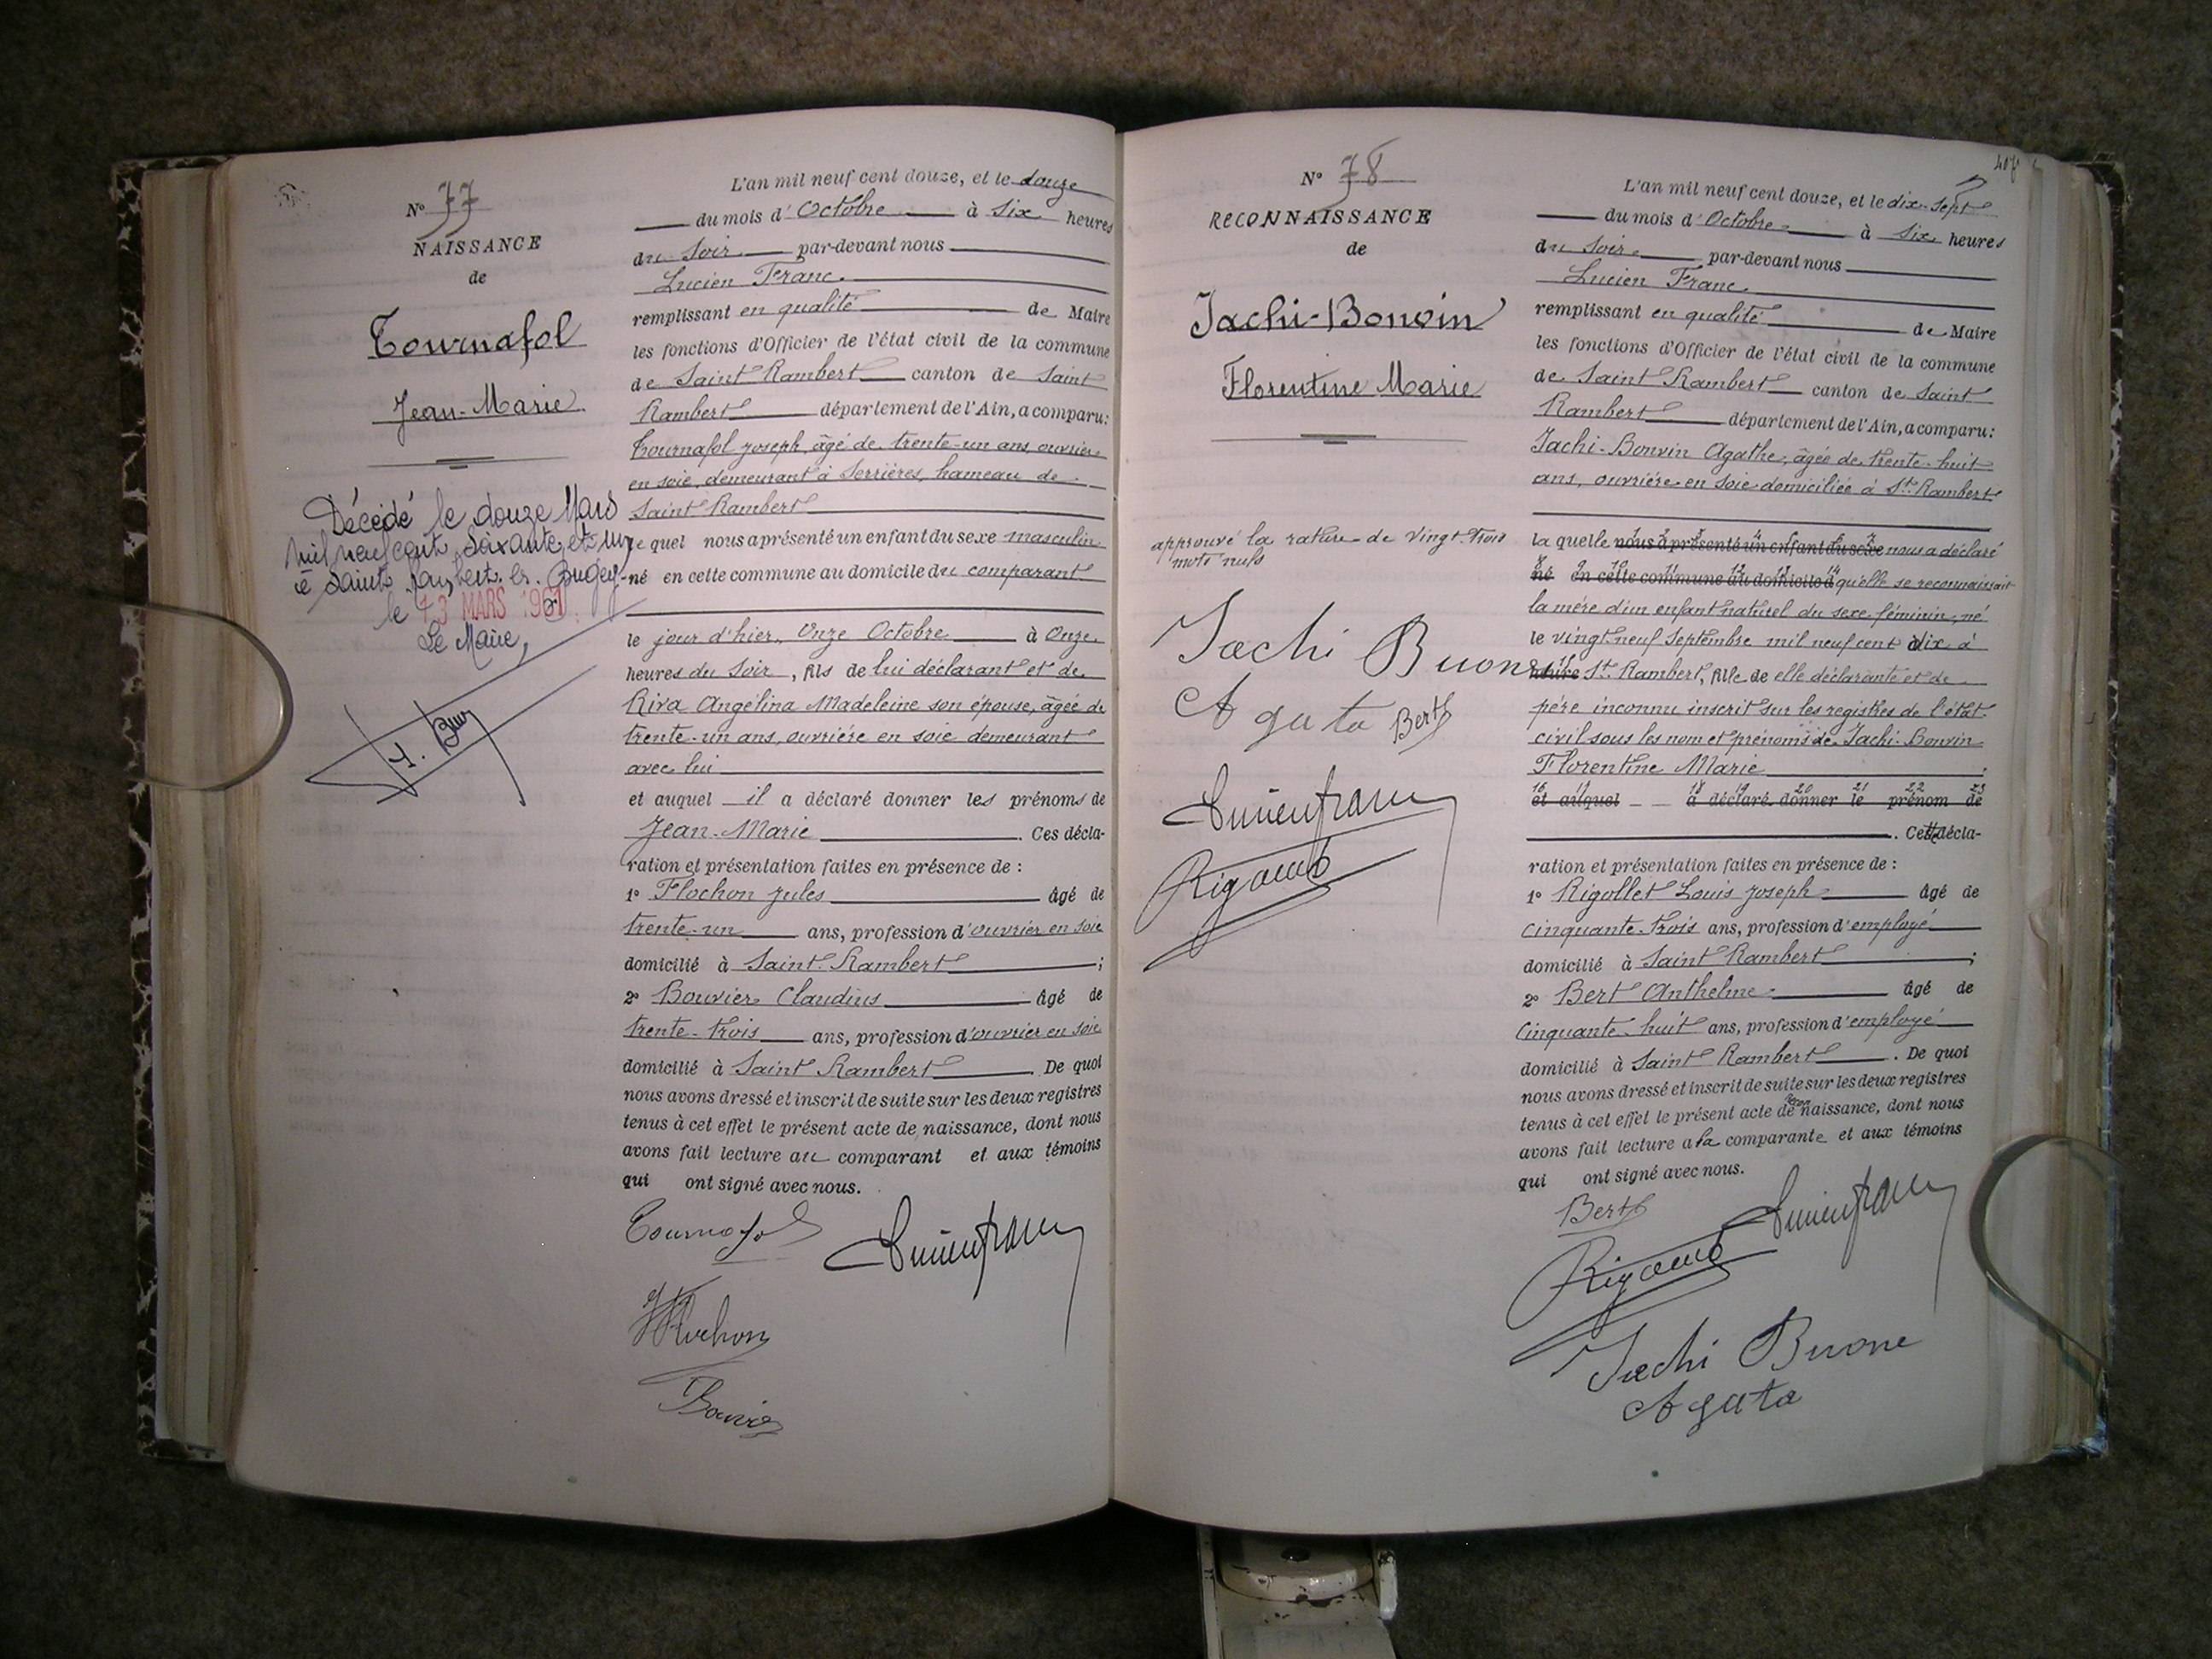 N° 77
NAISSANCE
de
Tournafol
Jean-Marie
Décédé le douze Mars
mil neuf cent soixante et un
à Saint Rambert en Bugey
le 13 MARS 1961
Le Maire,
L'an mil neuf cent douze, et le douze
du mois d'Octobre à six heures
du Soir par-devant nous
Lucien Franc
remplissant en qualité de Maire
les fonctions d'Officier de l'état civil de la commune
de Saint Rambert canton de Saint
Rambert département de l'Ain, a comparu:
Tournafol Joseph, âgé de trente-un ans, ouvrier
en soie, demeurant à Serrières, hameau de
Saint Rambert
le quel nous a présenté un enfant du sexe masculin
né en cette commune au domicile du comparant
le jour d'hier, Onze Octobre à Onze
heures du Soir, fils de lui déclarant et de
Riva Angélina Madeleine son épouse, âgée de
trente-un ans, ouvrière en soie demeurant
avec lui
et auquel il a déclaré donner les prénoms de
Jean-Marie. Ces décla-
ration et présentation faites en présence de :
1° Flochon Jules âgé de
trente-un ans, profession d'ouvrier en soie
domicilié à Saint-Rambert ;
2° Bouvier Claudius âgé de
trente-trois ans, profession d'ouvrier en soie
domicilié à Saint Rambert. De quoi
nous avons dressé et inscrit de suite sur les deux registres
tenus à cet effet le présent acte de naissance, dont nous
avons fait lecture au comparant et aux témoins
qui ont signé avec nous.
Tournafol
Lucien franc
Flochon
Bouvier
407
N° 78
RECONNAISSANCE
de
Jachi-Bonvin
Florentine Marie
approuvé la rature de vingt-trois
mots nuls
Jachi Buone
Agata Bert
Lucien franc
L'an mil neuf cent douze, et le dix-sept
du mois d'Octobre à six heures
du Soir par-devant nous
Lucien Franc
remplissant en qualité de Maire
les fonctions d'Officier de l'état civil de la commune
de Saint Rambert canton de Saint
Rambert département de l'Ain, a comparu:
Jachi-Bonvin Agathe, âgée de trente-huit
ans, ouvrière en soie domiciliée à St. Rambert
la quelle nous a présenté un enfant du sexe nous a déclaré
né en cette commune au domicile d qu'elle se reconnaissait
la mère d'un enfant naturel du sexe féminin, né
le vingt neuf Septembre mil neuf cent dix à
heures St. Rambert, fille de elle déclarante et de
père inconnu inscrit sur les registres de l'état-
civil sous les nom et prénoms de Jachi-Bonvin
Florentine Marie ;
et auquel a déclaré donner le prénom de
. Cette décla-
ration et présentation faites en présence de :
1° Rigollet Louis Joseph âgé de
cinquante-trois ans, profession d'employé
domicilié à Saint Rambert ;
2° Bert Anthelme âgé de
cinquante-huit ans, profession d'employé
domicilié à Saint Rambert. De quoi
nous avons dressé et inscrit de suite sur les deux registres
tenus à cet effet le présent acte de naissance, dont nous
avons fait lecture a la comparante et aux témoins
qui ont signé avec nous.
Bert
Lucien franc
Jachi Buone
Agata